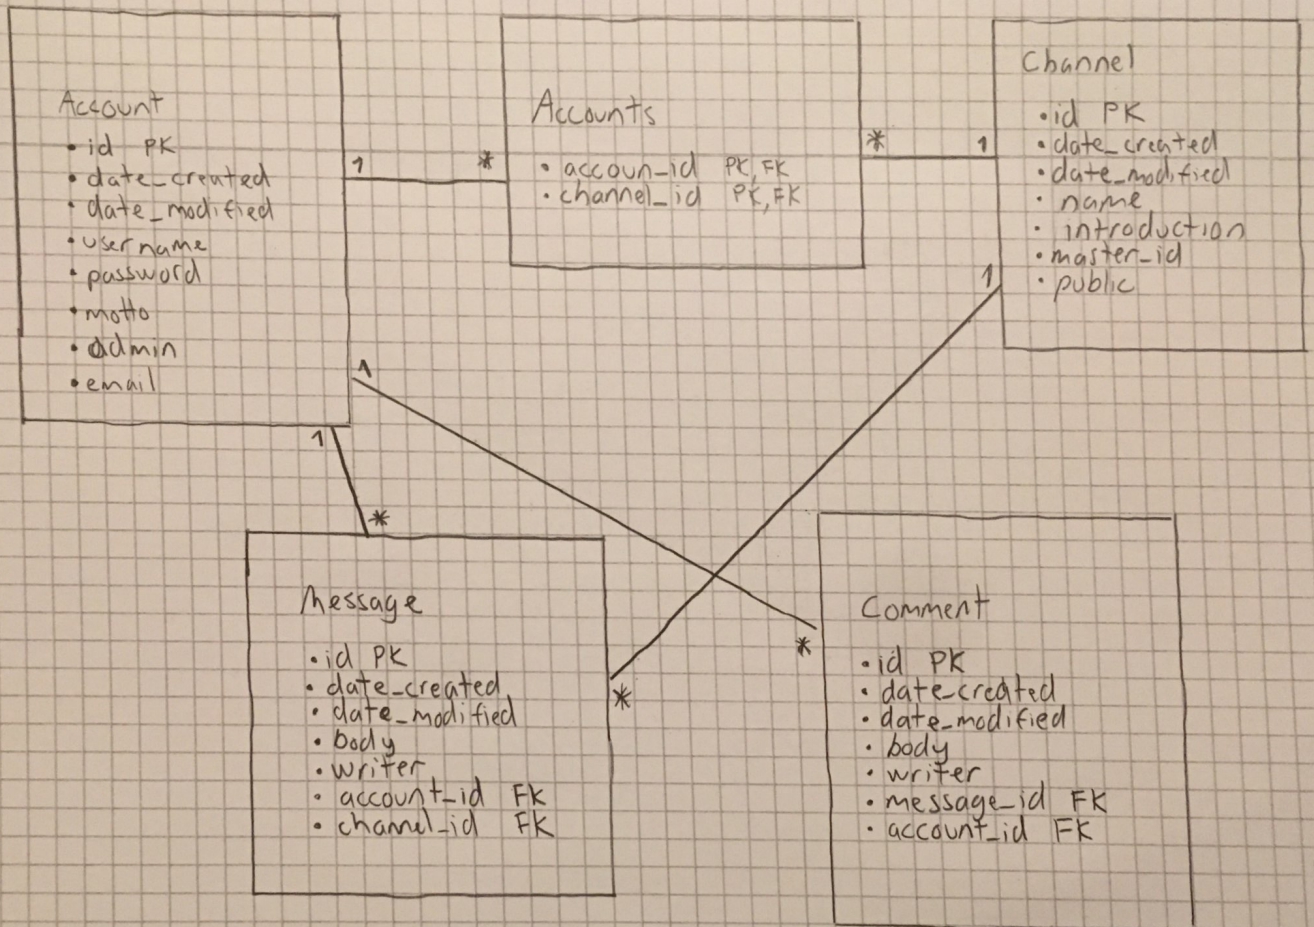 Account
• id PK
• date_created
• date_modified
• username
• password
• motto
• admin
• email
1
*
Accounts
• accoun_id PK, FK
• channel_id PK, FK
*
1
Channel
• id PK
• date_created
• date_modified
• name
• introduction
• master_id
• public
1
1
1
*
Message
• id PK
• date_created
• date_modified
• body
• writer
• account_id FK
• channel_id FK
*
*
Comment
• id PK
• date_created
• date_modified
• body
• writer
• message_id FK
• account_id FK